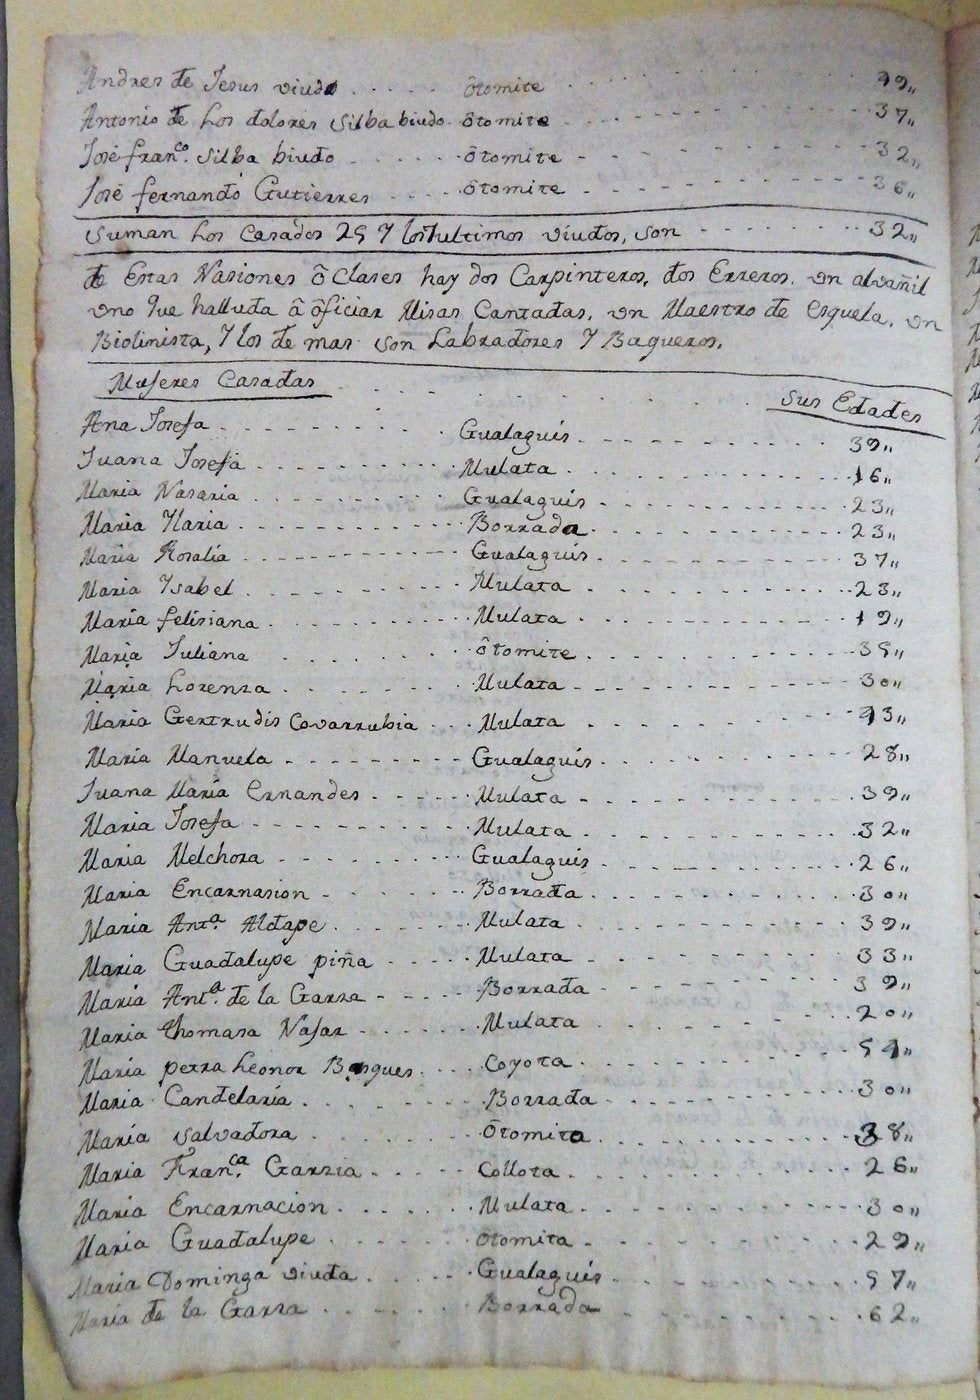 Andres de Jesus viudo ..... ôtomite ..... 49,,
Antonio de Los dolores silba biudo. ôtomite ..... 37,,
José franco. silba biudo ..... ôtomite ..... 32,,
José fernando Gutierres ..... ôtomite ..... 36,,
suman Los Casados 25 y los ultimos viudos, son ..... 32,,
de Estas Nasiones ô Clases hay dos Carpinteros, dos Erreros. un alvañil
uno que halluda â ôficiar Misas Cantadas. un Maestro de esquela. un
Biolinista, y los de mas son Labradores y Bagueros.
Mujeres Casadas ..... sus Edades
Ana Josefa ..... Gualaguis ..... 39,,
Juana Josefa ..... Mulata ..... 16,,
Maria Nasaria ..... Gualaguis ..... 23,,
Maria Ylaria ..... Borrada ..... 23,,
Maria Rosalia ..... Gualaguis ..... 37,,
Maria Ysabel ..... Mulata ..... 23,,
Maria felisiana ..... Mulata ..... 19,,
Maria Juliana ..... ôtomite ..... 35,,
Maria Lorenza ..... Mulata ..... 30,,
Maria Gertrudis Covarrubia ..... Mulata ..... 43,,
Maria Manuela ..... Gualaguis ..... 28,,
Juana Maria Ernandes ..... Mulata ..... 39,,
Maria Josefa ..... Mulata ..... 32,,
Maria Melchora ..... Gualaguis ..... 26,,
Maria Encarnasion ..... Borrada ..... 30,,
Maria Anta. Aldape ..... Mulata ..... 39,,
Maria Guadalupe piña ..... Mulata ..... 33,,
Maria Anta. de la Garza ..... Borrada ..... 39,,
Maria thomasa Najar ..... Mulata ..... 20,,
Maria petra Leonor Basques ..... Coyota ..... 54,,
Maria Candelaria ..... Borrada ..... 30,,
Maria salvadora ..... ôtomita ..... 38,,
Maria Franca. Garzia ..... Collota ..... 26,,
Maria Encarnacion ..... Mulata ..... 30,,
Maria Guadalupe ..... ôtomita ..... 29,,
Maria Dominga viuda ..... Gualaguis ..... 57,,
Maria de la Garza ..... Borrada ..... 62,,